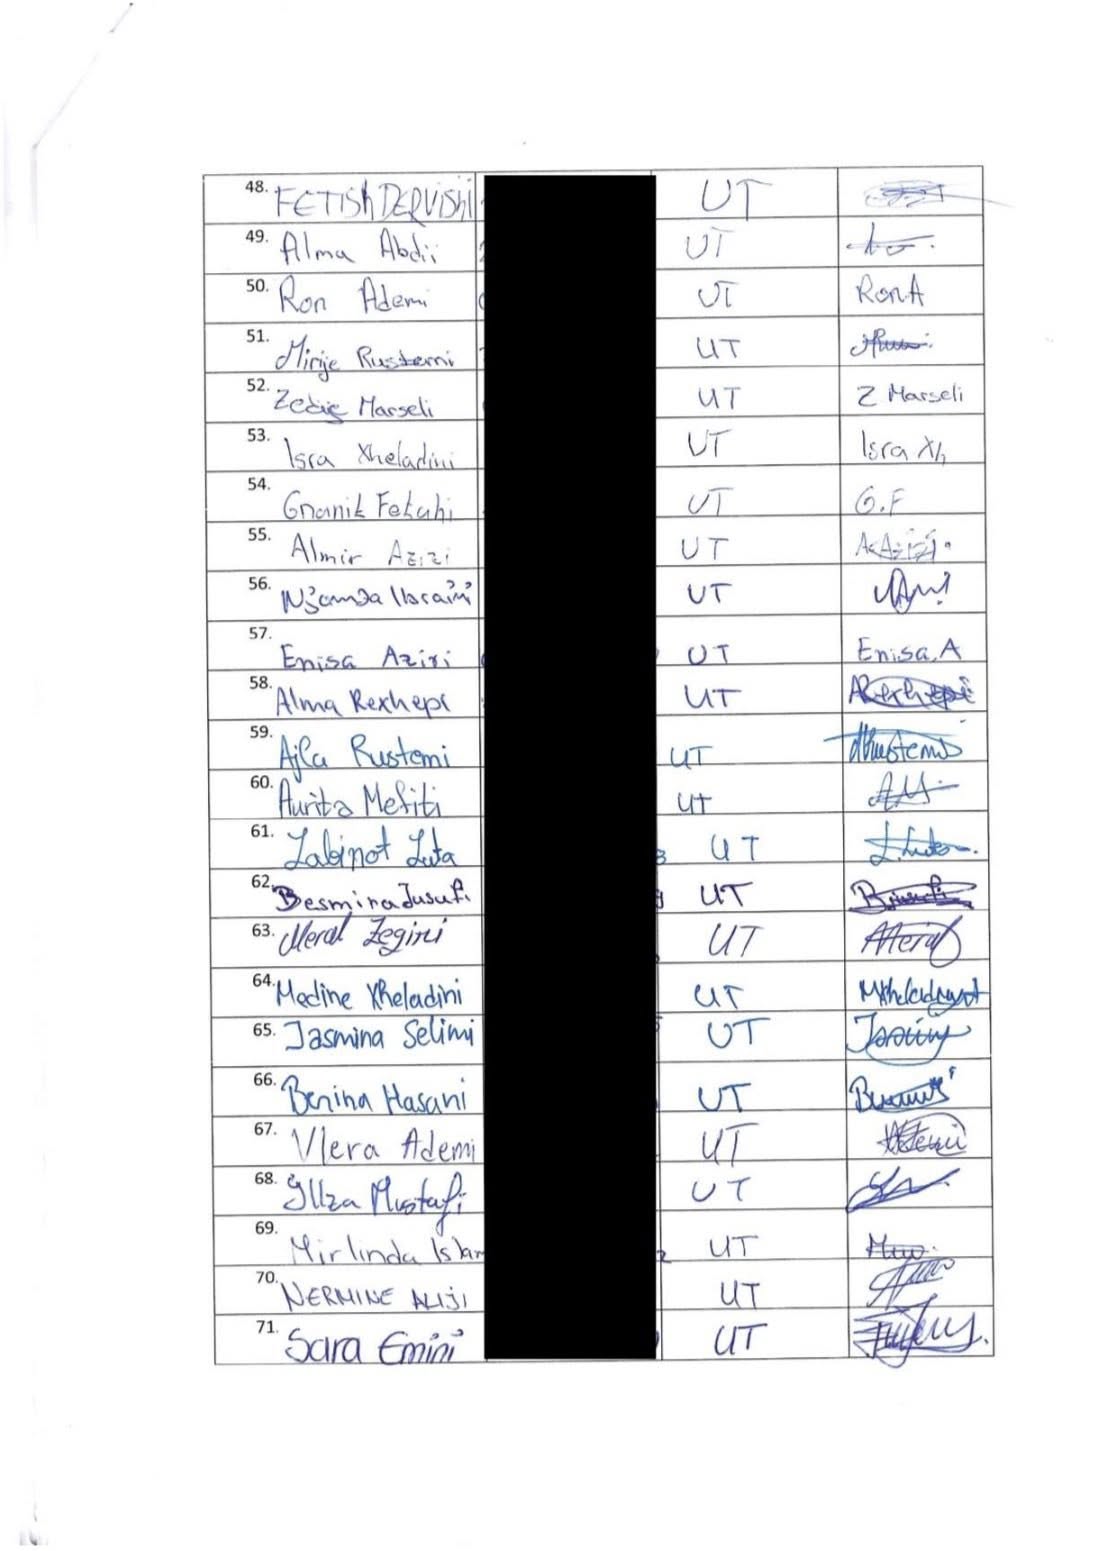 48. FETISH DERVISHI UT
49. Alma Abdii UT
50. Ron Ademi UT RonA
51. Mirije Rustemi UT
52. Marseli UT Z Marseli
53. Isra Xheladini UT Isra Xh
54. UT G.F
55. Almir Azizi UT A.Azizi.
56. UT
57. Enisa Aziri UT Enisa.A
58. Alma Rexhepi UT ARexhepi
59. Ajla Rustemi UT ARustemi
60. Aurita Mefiti UT AM
61. Labinot Luta UT L.Luta.
62. Besmina Jusufi UT
63. Meral Zeqiri UT Meral
64. Medine Xheladini UT
65. Jasmina Selimi UT
66. Benina Hasani UT
67. Vlera Ademi UT
68. Yllza Mustafi UT
69. Mirlinda UT
70. NERMINE ALIJI UT
71. Sara Emini UT